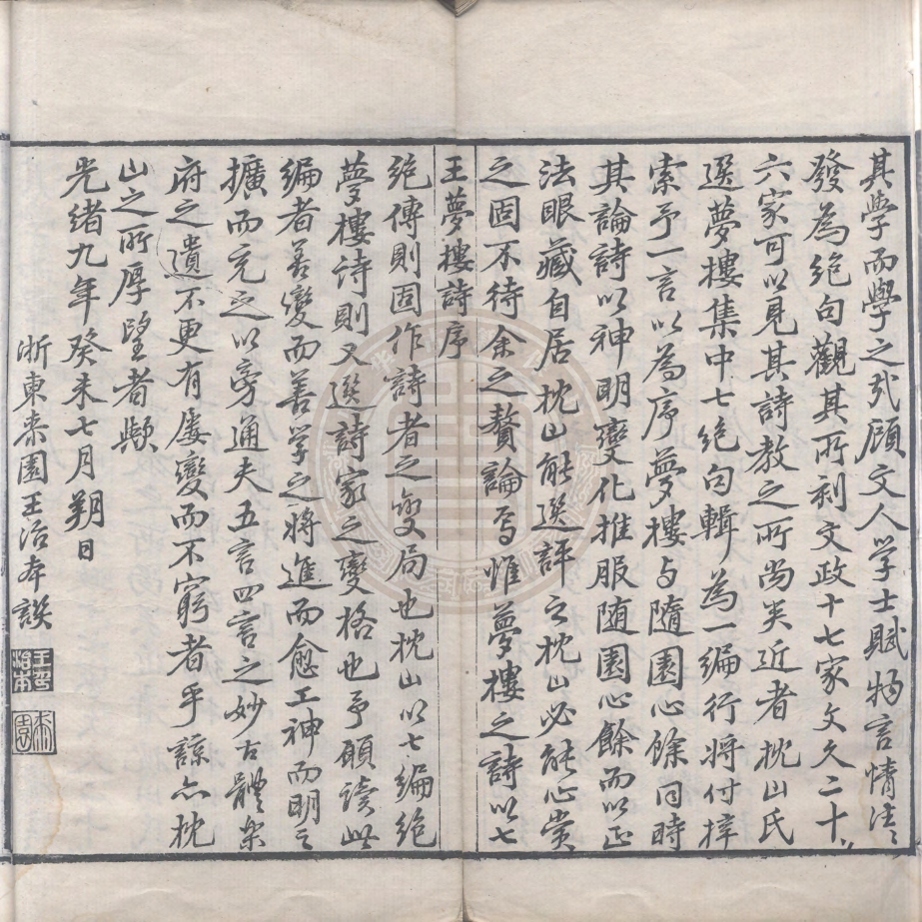 其學而學之式顧文人學士賦物言情往々
發為絕句觀其所刊文政十七家文久二十
六家可以見其詩教之所尚矣近者枕山氏
選夢樓集中七絕句輯為一編行將付梓
索予一言以為序夢樓与隨園心餘同時
其論詩以神明變化推服随園心餘而以正
法眼藏自居枕山能選評之枕山必能心賞
之固不待余之贅論焉惟夢樓之詩以七
王夢樓詩序
絕傳則固作詩者之变局也枕山以七編絕
夢樓詩則又選詩家之變格也予願讀此
編者善變而善学之將進而愈工神而明之
擴而充之以旁通夫五言四言之妙古體樂
府之遺不更有屢變而不窮者乎諒亦枕
山之所厚望者歟
光緒九年癸未七月朔日
浙東桼園王治本譔
王治本印
桼園